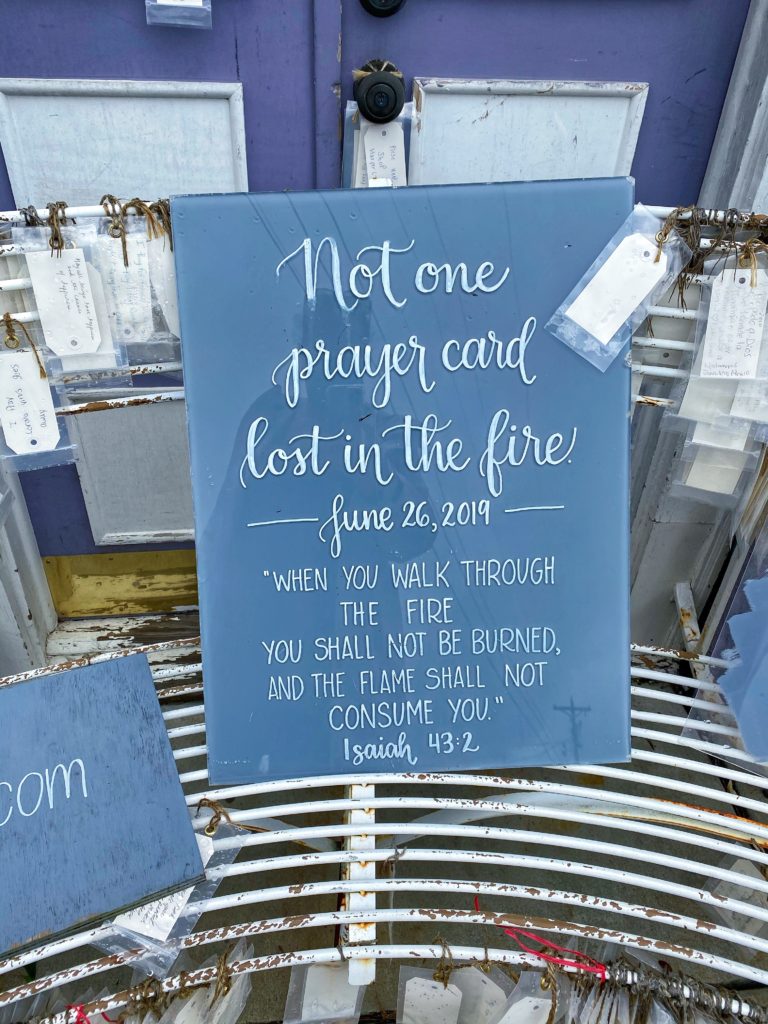 Not one
prayer card
lost in the fire.
June 26, 2019
"WHEN YOU WALK THROUGH
THE FIRE
YOU SHALL NOT BE BURNED,
AND THE FLAME SHALL NOT
CONSUME YOU."
Isaiah 43:2
.com